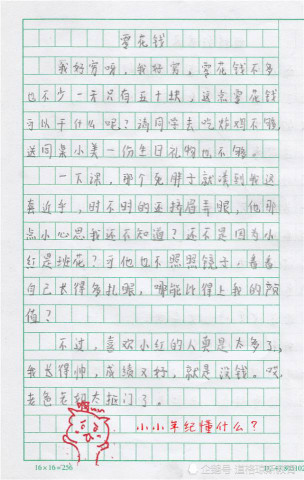 零花钱
我好穷呀，我好穷，零花钱不多
也不少一天只有五十块，这点零花钱
可以干什么呢？请同学去吃炸鸡不够，
送同桌小美一份生日礼物也不够。
一下课，那个死胖子就凑到我这
套近乎，时不时的还挤眉弄眼，他那
点小心思我还不知道？还不是因为小
红是班花？可他也不照照镜子，看看
自己长得多扎眼，哪能比得上我的颜
值？
不过，喜欢小红的人真是太多了，
我长得帅，成绩又好，就是没钱。哎，
老爸老妈太抠门了。
小小年纪懂什么？
16×16=256